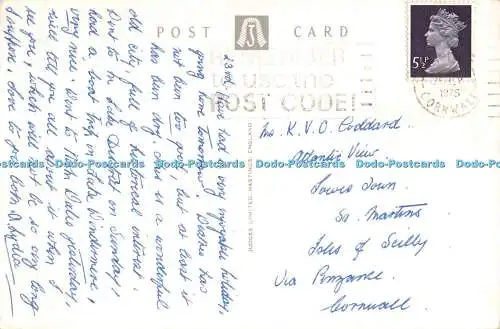 POST CARD
REMEMBER
to use the
POST CODE!
5½P
1975
CORNWALL
23rd Sept. had a very enjoyable holiday,
going home tomorrow. Weather has
not been too good but at least it
has been dry. Chester is a wonderful
old city, full of historical interest.
Went to the Lake District on Sunday,
had a boat trip on Lake Windermere,
very nice. Went to North Wales yesterday,
will tell you all about it when I
see you, which will not be so very long
I suppose, love to you both
JUDGES LIMITED, HASTINGS, ENGLAND
Mr. K. V. O. Goddard.
Atlantic View
Lowes Town,
St. Martins
Isles of Scilly
Via Penzance.
Cornwall.
Dodo-Postcards